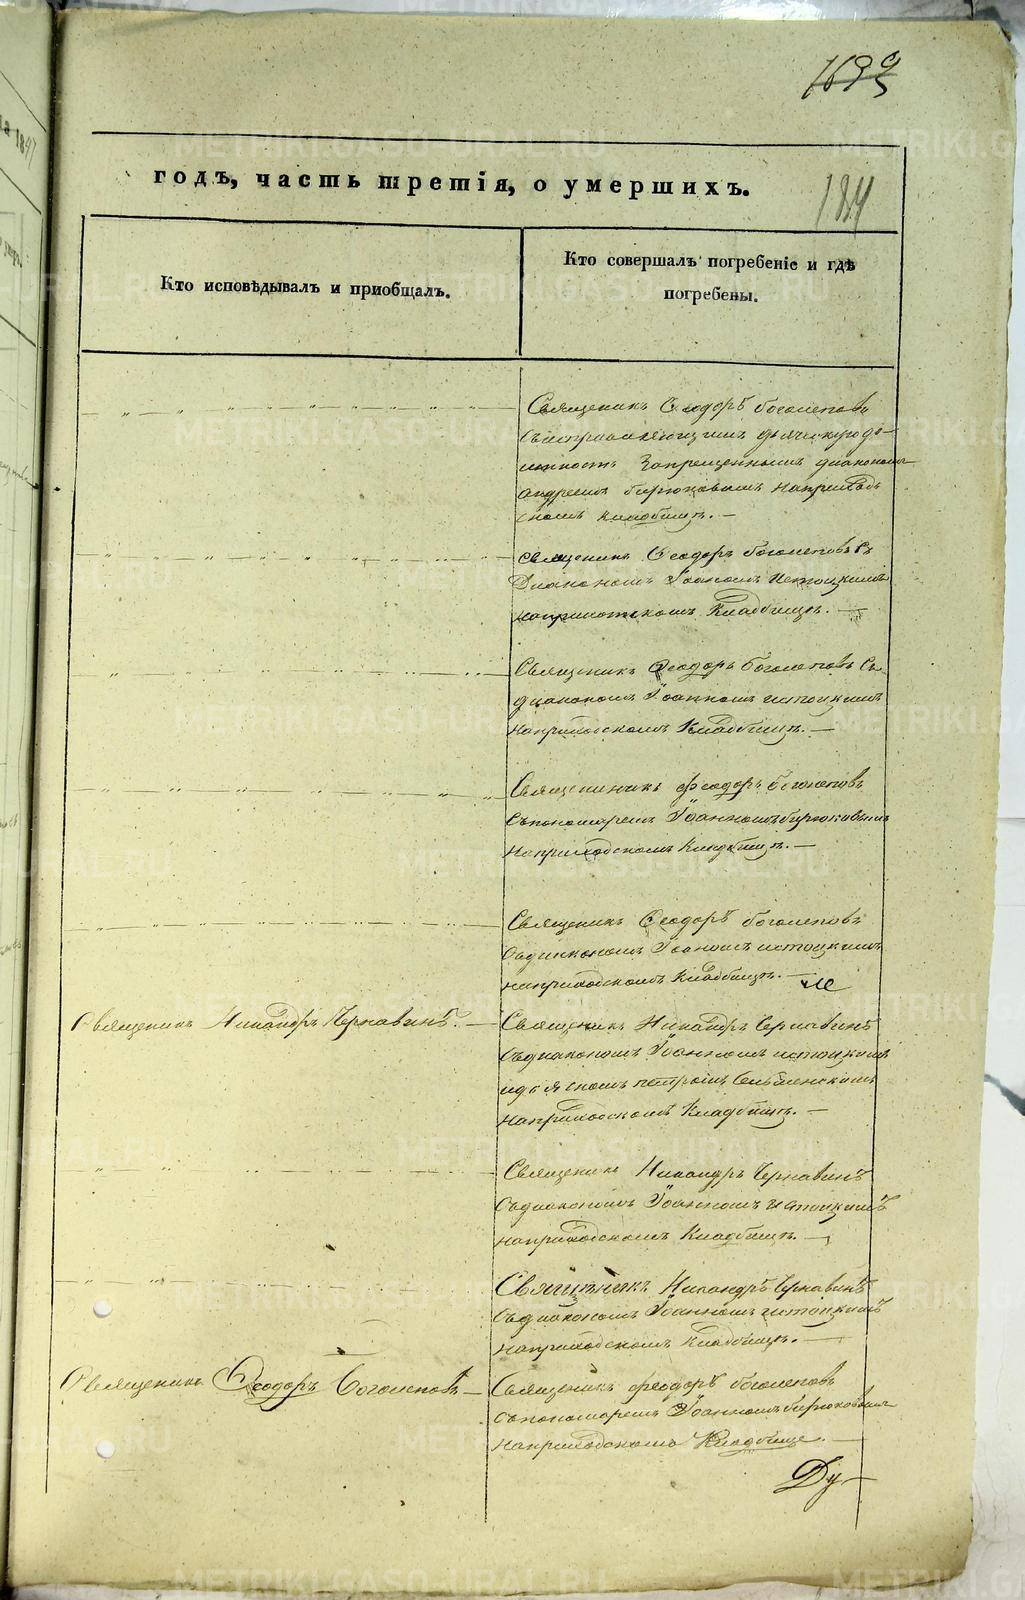 1699
184
годъ, часть третія, о умершихъ.
Кто исповѣдывалъ и пріобщалъ.
Кто совершалъ погребеніе и гдѣ
погребены.
Священикъ Ѳеодоръ боголеповъ
Съисправляющимъ дьяческую до-
лжность Запрещеннымъ диакономъ
андреемъ бирюковымъ наприход
скомъ кладбищѣ. —
священикъ Ѳеодоръ боголеповъ съ
Диакономъ Іоаномъ истоцкимъ
Кладбищѣ. —
Священикъ Ѳеодоръ боголеповъ Съ
диакономъ Іоанномъ истоцкимъ
наприходскомъ Кладбищѣ. —
Священникъ феодоръ боголеповъ
Съпономаремъ Іоанномъ бирюковымъ
наприходскомъ Кладбищѣ. —
Священикъ Ѳеодоръ боголеповъ
Съдиакономъ Іоаномъ истоцкимъ
наприходскомъ Кладбищѣ. —
Священикъ Никандръ Чернавинъ. —
Священикъ Никандръ Чернавинъ
Съдиакономъ Іоанномъ истоцкимъ
наприходскомъ Кладбищѣ. —
Священикъ Никандръ Чернавинъ
Съдиакономъ Іоанномъ Истоцкимъ
наприходскомъ Кладбищѣ. —
Священникъ Никандръ Чернавинъ
Съдиакономъ Іоанномъ истоцкимъ
наприходскомъ Кладбищѣ. —
Священикъ Ѳеодоръ боголеповъ —
Священикъ феодоръ боголеповъ
Съпономаремъ Іоанномъ бирюковымъ
наприходскомъ Кладбище. —
Ду—
METRIKI.GASO-URAL.RU